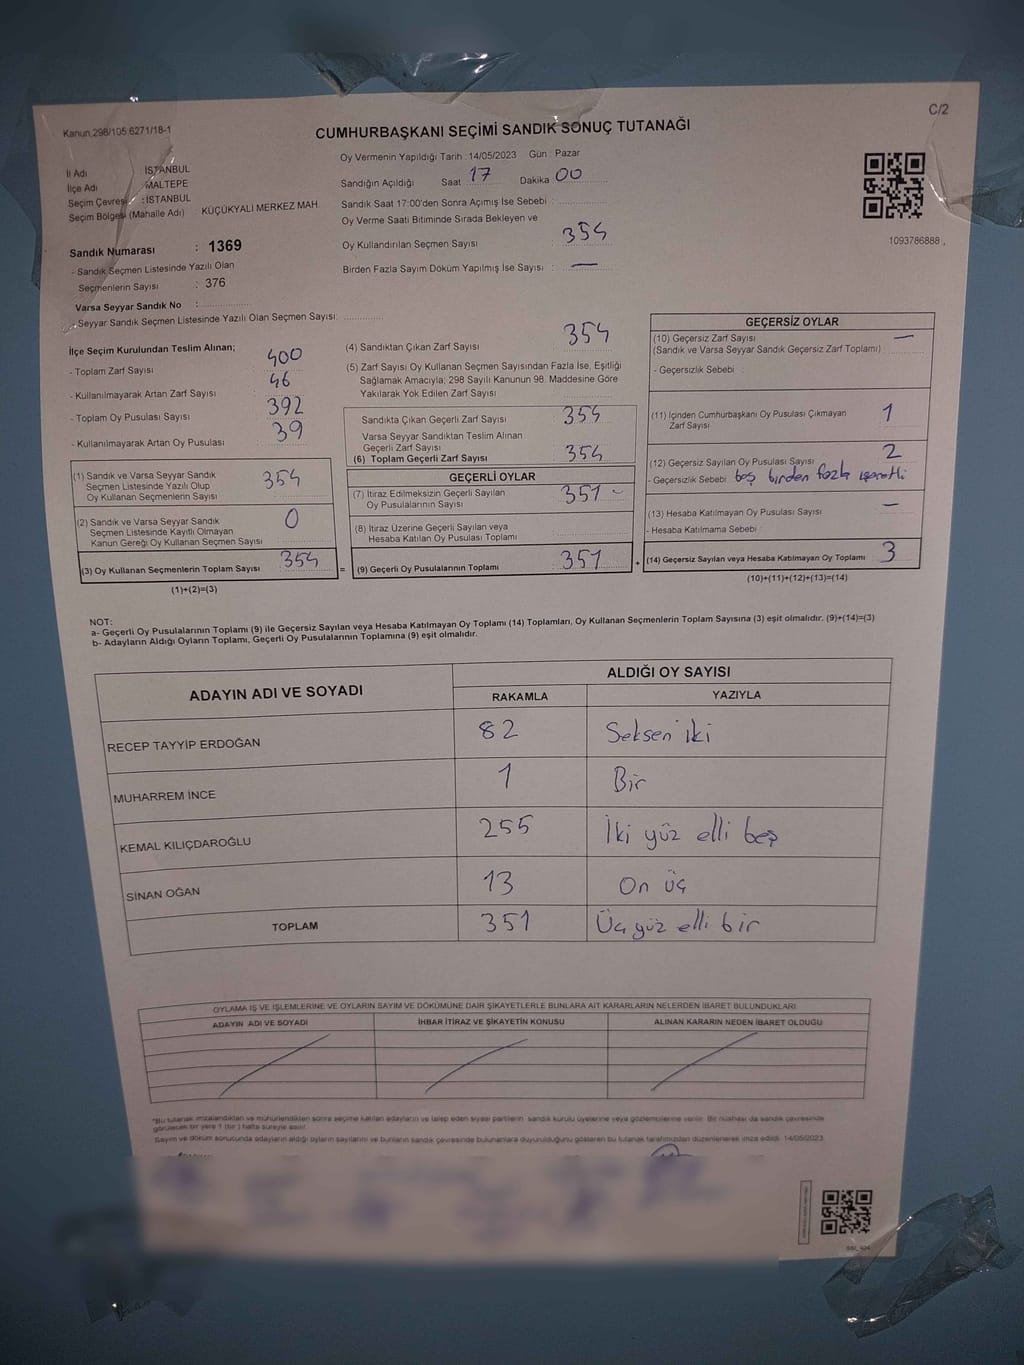 C/2
Kanun.298/105.6271/18-1
CUMHURBAŞKANI SEÇİMİ SANDIK SONUÇ TUTANAĞI
İl Adı İSTANBUL
İlçe Adı MALTEPE
Seçim Çevresi : İSTANBUL
Seçim Bölgesi (Mahalle Adı) KÜÇÜKYALI MERKEZ MAH.
Oy Vermenin Yapıldığı Tarih : 14/05/2023 Gün : Pazar
Sandığın Açıldığı Saat 17 Dakika 00
Sandık Saat 17:00'den Sonra Açımış İse Sebebi :
Oy Verme Saati Bitiminde Sırada Bekleyen ve
Oy Kullandırılan Seçmen Sayısı : 354
Birden Fazla Sayım Döküm Yapılmış İse Sayısı : —
1093786888
Sandık Numarası : 1369
- Sandık Seçmen Listesinde Yazılı Olan
Seçmenlerin Sayısı : 376
Varsa Seyyar Sandık No :
- Seyyar Sandık Seçmen Listesinde Yazılı Olan Seçmen Sayısı:
İlçe Seçim Kurulundan Teslim Alınan;
- Toplam Zarf Sayısı 400
- Kullanılmayarak Artan Zarf Sayısı 46
- Toplam Oy Pusulası Sayısı 392
- Kullanılmayarak Artan Oy Pusulası 39
(1) Sandık ve Varsa Seyyar Sandık
Seçmen Listesinde Yazılı Olup
Oy Kullanan Seçmenlerin Sayısı 354
(2) Sandık ve Varsa Seyyar Sandık
Seçmen Listesinde Kayıtlı Olmayan
Kanun Gereği Oy Kullanan Seçmen Sayısı 0
(3) Oy Kullanan Seçmenlerin Toplam Sayısı 354 =
(1)+(2)=(3)
(4) Sandıktan Çıkan Zarf Sayısı 354
(5) Zarf Sayısı Oy Kullanan Seçmen Sayısından Fazla İse, Eşitliği
Sağlamak Amacıyla; 298 Sayılı Kanunun 98. Maddesine Göre
Yakılarak Yok Edilen Zarf Sayısı
Sandıkta Çıkan Geçerli Zarf Sayısı 354
Varsa Seyyar Sandıktan Teslim Alınan
Geçerli Zarf Sayısı
(6) Toplam Geçerli Zarf Sayısı 354
GEÇERLİ OYLAR
(7) İtiraz Edilmeksizin Geçerli Sayılan
Oy Pusulalarının Sayısı 351 -
(8) İtiraz Üzerine Geçerli Sayılan veya
Hesaba Katılan Oy Pusulası Toplamı
(9) Geçerli Oy Pusulalarının Toplamı 351 +
GEÇERSİZ OYLAR
(10) Geçersiz Zarf Sayısı —
(Sandık ve Varsa Seyyar Sandık Geçersiz Zarf Toplamı)
- Geçersizlik Sebebi :
(11) İçinden Cumhurbaşkanı Oy Pusulası Çıkmayan
Zarf Sayısı 1
(12) Geçersiz Sayılan Oy Pusulası Sayısı 2
- Geçersizlik Sebebi boş birden fazla işaretli
(13) Hesaba Katılmayan Oy Pusulası Sayısı —
- Hesaba Katılmama Sebebi
(14) Geçersiz Sayılan veya Hesaba Katılmayan Oy Toplamı 3
(10)+(11)+(12)+(13)=(14)
NOT:
a- Geçerli Oy Pusulalarının Toplamı (9) ile Geçersiz Sayılan veya Hesaba Katılmayan Oy Toplamı (14) Toplamları, Oy Kullanan Seçmenlerin Toplam Sayısına (3) eşit olmalıdır. (9)+(14)=(3)
b- Adayların Aldığı Oyların Toplamı, Geçerli Oy Pusulalarının Toplamına (9) eşit olmalıdır.
ADAYIN ADI VE SOYADI ALDIĞI OY SAYISI
RAKAMLA YAZIYLA
RECEP TAYYİP ERDOĞAN 82 Seksen iki
MUHARREM İNCE 1 Bir
KEMAL KILIÇDAROĞLU 255 İki yüz elli beş
SİNAN OĞAN 13 On üç
TOPLAM 351 Üç yüz elli bir
OYLAMA İŞ VE İŞLEMLERİNE VE OYLARIN SAYIM VE DÖKÜMÜNE DAİR ŞİKAYETLERLE BUNLARA AİT KARARLARIN NELERDEN İBARET BULUNDUKLARI
ADAYIN ADI VE SOYADI İHBAR İTİRAZ VE ŞİKAYETİN KONUSU ALINAN KARARIN NEDEN İBARET OLDUĞU
*Bu tutanak imzalandıktan ve mühürlendikten sonra seçime katılan adayların ve talep eden siyasi partilerin sandık kurulu üyelerine veya gözlemcilerine verilir. Bir nüshası da sandık çevresinde
görülecek bir yere 1 (bir) hafta süreyle asılır.
Sayım ve döküm sonucunda adayların aldığı oyların sayılarını ve bunların sandık çevresinde bulunanlara duyurulduğunu gösteren bu tutanak tarafımızdan düzenlenerek imza edildi. 14/05/2023